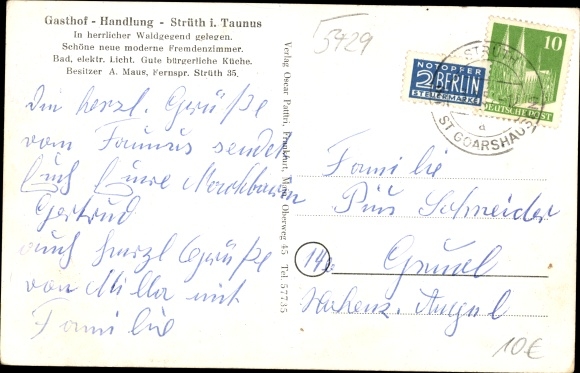 Gasthof - Handlung - Strüth i. Taunus
In herrlicher Waldgegend gelegen.
Schöne neue moderne Fremdenzimmer.
Bad, elektr. Licht. Gute bürgerliche Küche.
Besitzer A. Maus, Fernspr. Strüth 35.
Die herzl. Grüße
vom Taunus sendet
Euch Eure Nachbarin
Gertrud
auch herzl Grüße
von Milla mit
Familie
Verlag Oscar Pattri, Frankfurt, Oberweg 45 Tel. 57735
5429
NOTOPFER
2 BERLIN
STEUERMARKE
10
DEUTSCHE POST
STRÜTH
ST GOARSHAUSEN
a
Familie
Pius Schneider
14b
Gruol
Hohenz.
10€